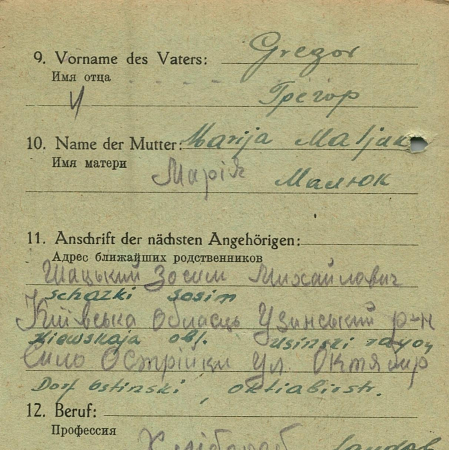 9. Vorname des Vaters: Gregor
Имя отца
Грегор
10. Name der Mutter: Marija Maljuk
Имя матери Марія Малюк
11. Anschrift der nächsten Angehörigen:
Адрес ближайших родственников
Шацький Зосим Михайлович
Schazki Sosim
Київська Область Узинський р-н
Kiewskaja obl. Usinski rayon
Село Острійки ул. Октябр
Dorf Ostinski, oktiabirstr.
12. Beruf:
Профессия Хлібороб Landarb